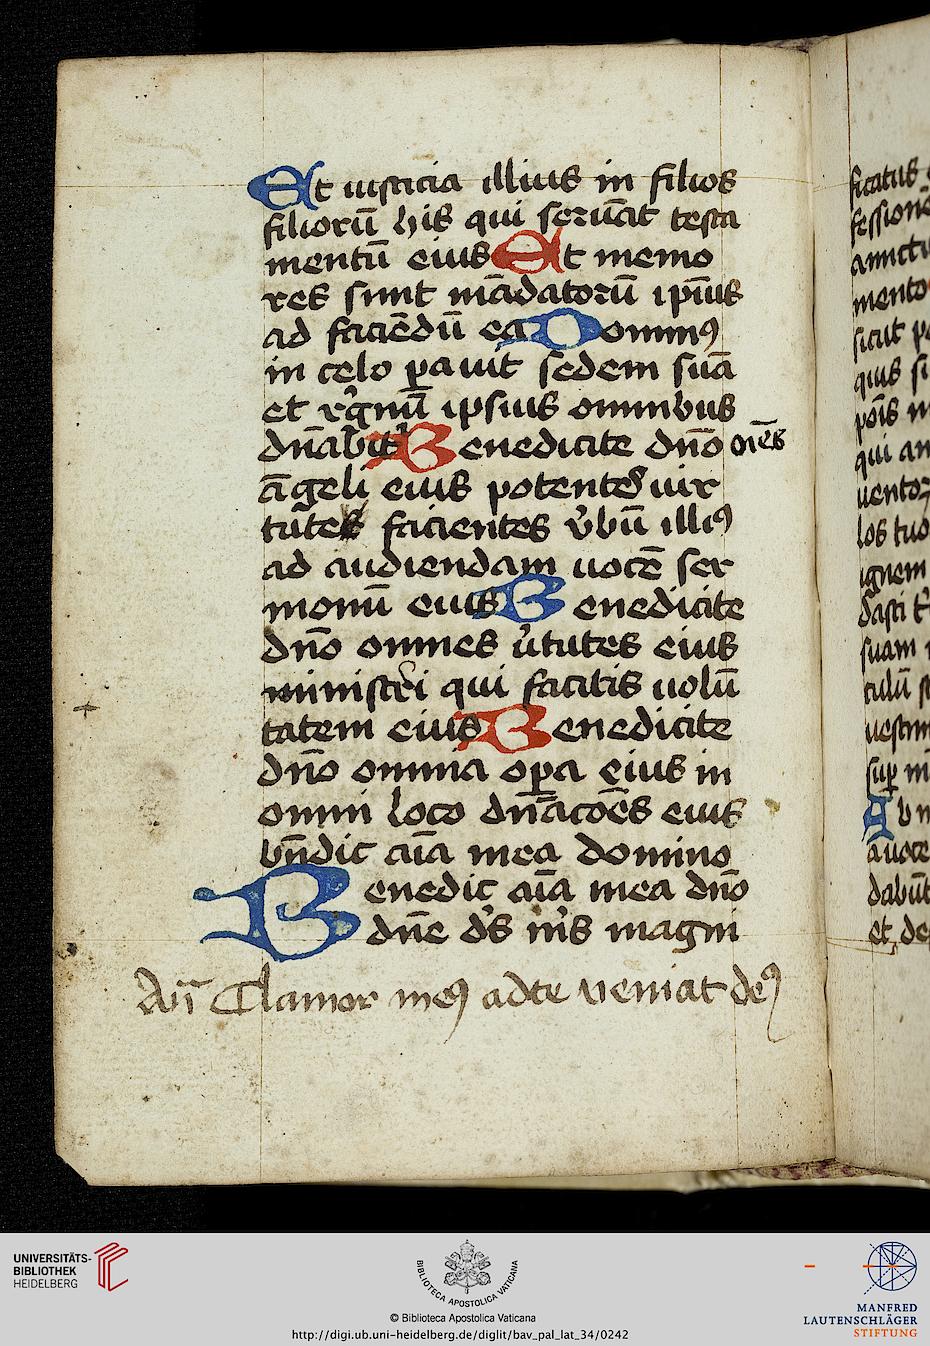 Et iusticia illius in filios
filiorū his qui seruāt testa
mentū eius Et memo
res sunt mādatorū ipīus
ad faciēdū ea Dominꝰ
in celo ꝑauit sedem suā
et regnū ipsius omnibus
dn̄abit̉ Benedicite dn̄o oīēs
āgeli eius potentes uir
tutes facientes v̉bū illiꝰ
ad audiendam uocē ser
monū eius Benedicite
dn̄o omnes v̉tutes eius
ministri qui facitis uolū
tatem eius Benedicite
dn̄o omnia oꝑa eius in
omni loco dn̄acōēs eius
bn̄dic aīa mea domino
Benedic aīa mea dn̄o
dn̄e ds̄ ms̄ magni
Añ Clamor meꝰ adte veniat deꝰ
ficatus
fessionē
amictu
mento
sicut
qui
uento
los tuo
ignem
suam
culū
uestim
suꝑ
auoce
dabūt
et de
UNIVERSITÄTS-
BIBLIOTHEK
HEIDELBERG
BIBLIOTECA APOSTOLICA VATICANA
© Biblioteca Apostolica Vaticana
http://digi.ub.uni-heidelberg.de/diglit/bav_pal_lat_34/0242
MANFRED
LAUTENSCHLÄGER
STIFTUNG